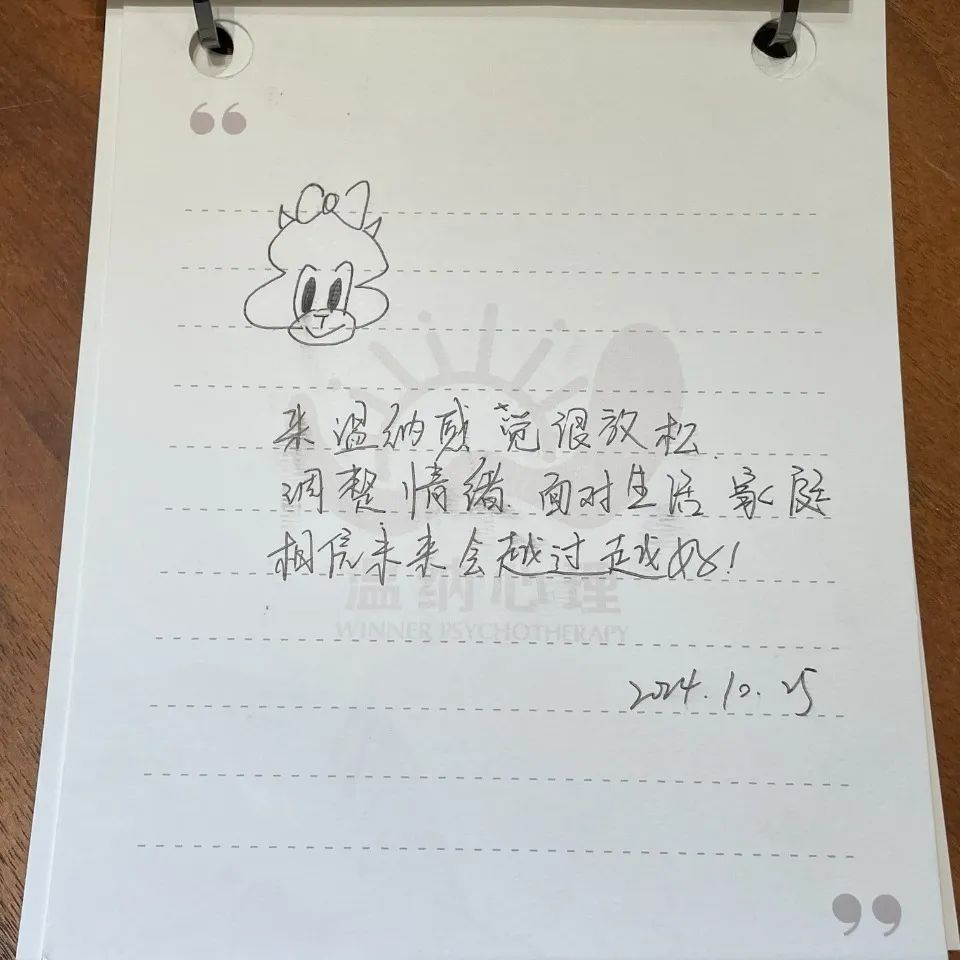 来温纳感觉很放松.
调整情绪.面对生活 家庭
相信未来会越过越好!
温纳心理
WINNER PSYCHOTHERAPY
2024.10.25